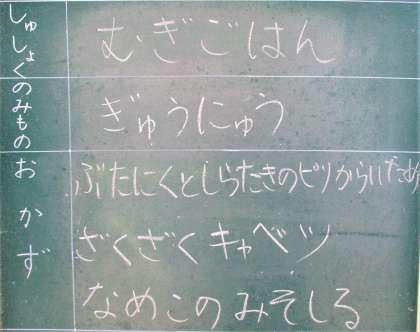 しゅしょく
むぎごはん
のみもの
ぎゅうにゅう
おかず
ぶたにくとしらたきのピリからいため
ざくざくキャベツ
なめこのみそしる